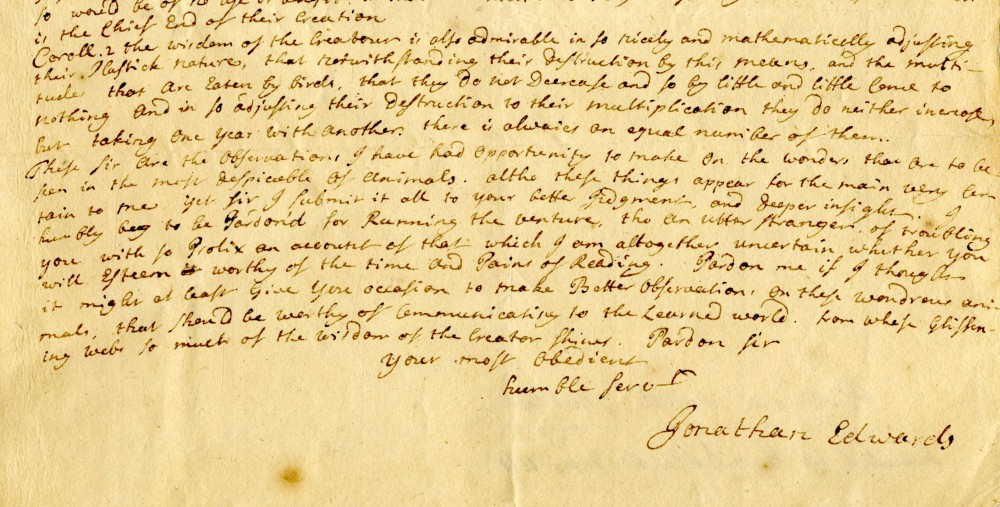 so would be of no use
is the Chief End of their Creation
Coroll. 2 the wisdom of the Creatour is also admirable in so nicely and mathematically adjusting
their Plastick nature, that notwithstanding their destruction by this means, and the multi-
tudes that are Eaten by birds, that they do not Decrease and so by little and little Come to
nothing And in so adjusting their destruction to their multiplication they do neither increase,
but taking One year with another. there is alwaies an equal number of them.
These Sir Are the Observations I have had Opportunity to make On the wonders that are to be
seen in the most despicable of animals. altho these things appear for the main very Cer
tain to me yet Sir I submit it all to your better Judgment, and deeper insight. I
humbly beg to be Pardon'd for Running the venture, tho an utter stranger, of troubling
you with so Prolix an account of that which I am altogether uncertain whether you
will Esteem worthy of the time and Pains of Reading. Pardon me if I thought
it might at least Give You occasion to make Better Observations on these wondrous ani-
mals, that should be worthy of Communicating to the Learned world. from whose Glissen-
ing webs so much of the wisdom of the Creator shines. Pardon Sir
your most Obedient
humble Servt
Jonathan Edwards